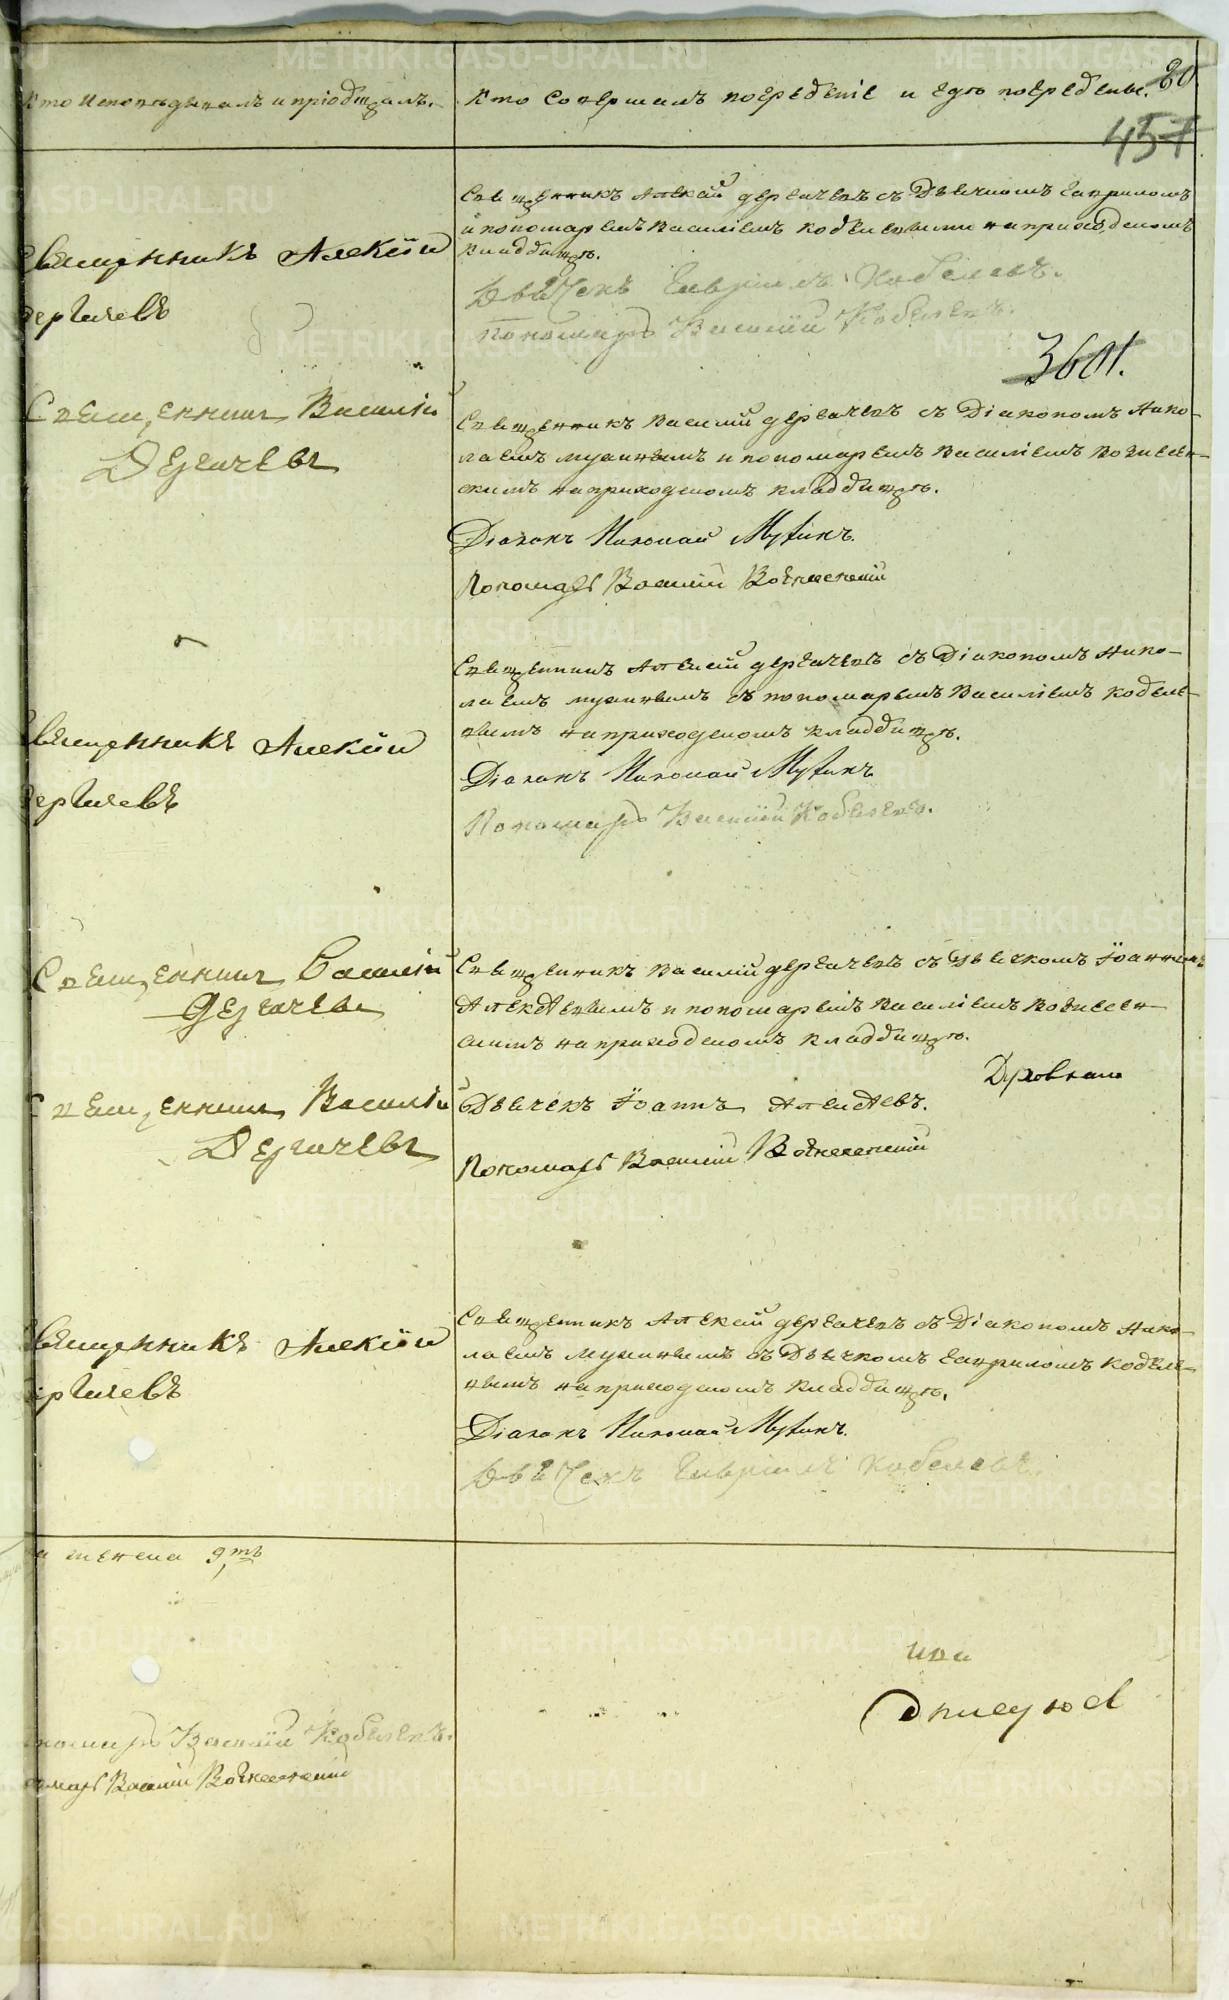 Кто исповѣдывалъ и пріобщалъ.
Кто совершалъ погребеніе и гдѣ погребены.
20
457
Священникъ Алексій
Дергачевъ
Священникъ Алексій Дергачевъ съ Дьячкомъ Гавриломъ
и пономаремъ Василіемъ Кобелевыми на приходскомъ
кладбищѣ.
Дьячекъ Гавріилъ Кобелевъ.
Пономарь Василій Кобелевъ.
3601.
Священникъ Василій
Дергачевъ
Священникъ Василій Дергачевъ съ Діакономъ Нико-
лаемъ Мухинымъ и пономаремъ Василіемъ Вознесен-
скимъ на приходскомъ кладбищѣ.
Діаконъ Николай Мухинъ.
Пономарь Василій Вознесенскій
Священникъ Алексій
Дергачевъ
Священникъ Алексій Дергачевъ съ Діакономъ Нико-
лаемъ Мухинымъ съ пономаремъ Василіемъ Кобеле-
вымъ на приходскомъ кладбищѣ.
Діаконъ Николай Мухинъ
Пономарь Василій Кобелевъ.
Священникъ Василій
Дергачевъ
Священникъ Василій Дергачевъ съ Дьячкомъ Іоанномъ
и пономаремъ Василіемъ Вознесен-
скимъ на приходскомъ кладбищѣ.
Священникъ Василій
Дергачевъ
Дьячекъ Іоаннъ
Пономарь Василій Вознесенскій
Священникъ Алексій
Дергачевъ
Священникъ Алексій Дергачевъ съ Діакономъ Нико-
лаемъ Мухинымъ съ Дьячкомъ Гавриломъ Кобеле-
вымъ на приходскомъ кладбищѣ.
Діаконъ Николай Мухинъ.
Дьячекъ Гавріилъ Кобелевъ.
женска 9ть
Пономарь Василій Кобелевъ.
Пономарь Василій Вознесенскій
METRIKI.GASO-URAL.RU